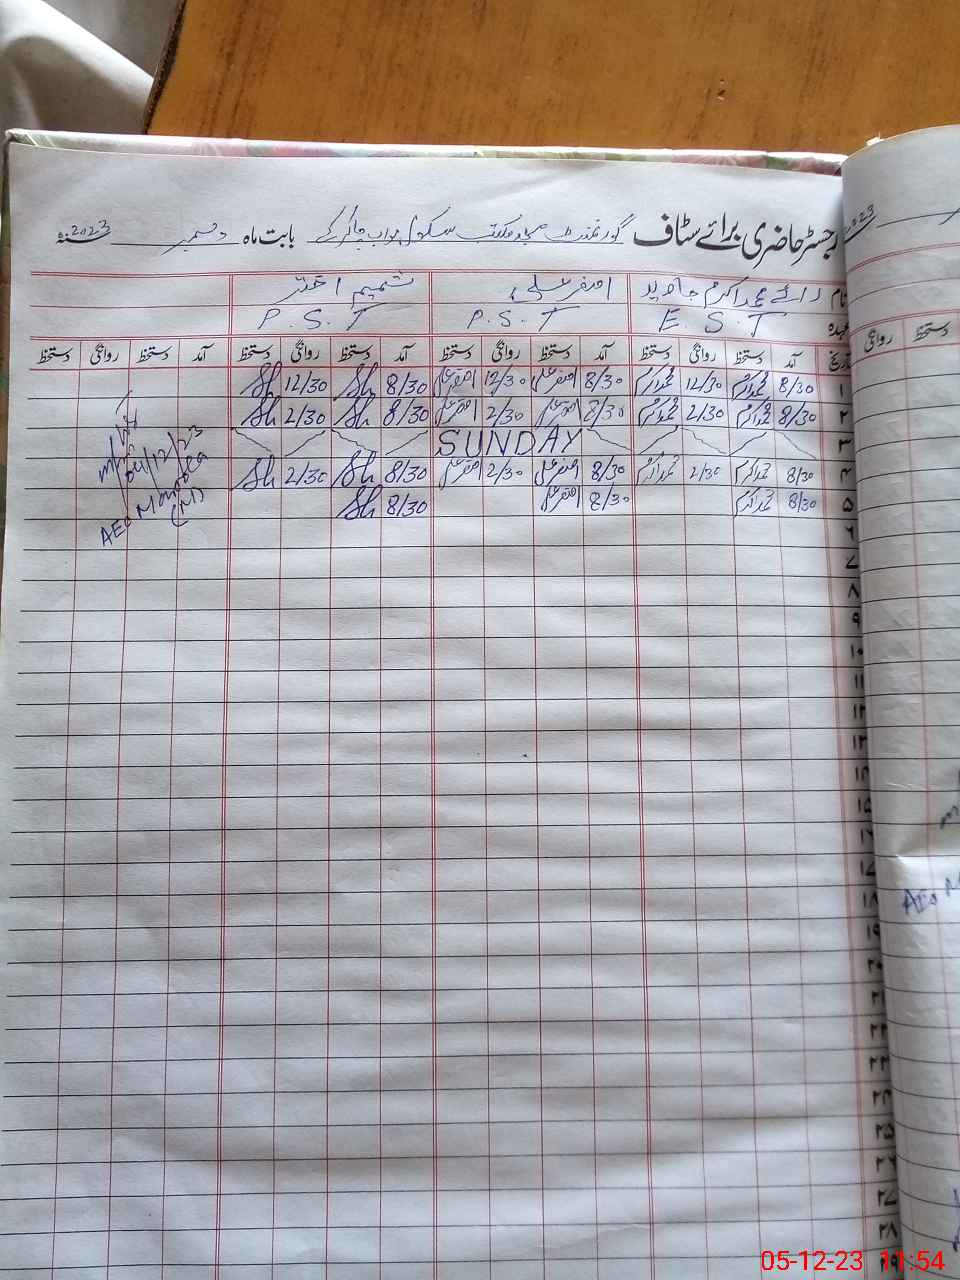 رجسٹر حاضری برائے سٹاف گورنمنٹ مسجد مکتب سکول نواب چاکر کے بابت ماہ دسمبر سنہ 2023
نام رائے محمد اکرم جاوید اصغر علی شمیم اختر
عہدہ E.S.T P.S.T P.S.T
تاریخ آمد دستخط روانگی دستخط آمد دستخط روانگی دستخط آمد دستخط روانگی دستخط آمد دستخط روانگی دستخط
۱ 8/30 محمد اکرم 12/30 محمد اکرم 8/30 اصغر علی 12/30 اصغر علی 8/30 Sh 12/30 Sh
۲ 8/30 محمد اکرم 2/30 محمد اکرم 8/30 اصغر علی 2/30 اصغر علی 8/30 Sh 2/30 Sh
۳ SUNDAY
۴ 8/30 محمد اکرم 2/30 محمد اکرم 8/30 اصغر علی 2/30 اصغر علی 8/30 Sh 2/30 Sh
۵ 8/30 محمد اکرم 8/30 اصغر علی 8/30 Sh
04/12/23
AEO
(M)
۶
۷
۸
۹
۱۰
۱۱
۱۲
۱۳
۱۴
۱۵
۱۶
۱۷
۱۸
۱۹
۲۰
۲۱
۲۲
۲۳
۲۴
۲۵
۲۶
۲۷
۲۸
۲۹
روانگی دستخط
AEO M
05-12-23 11:54